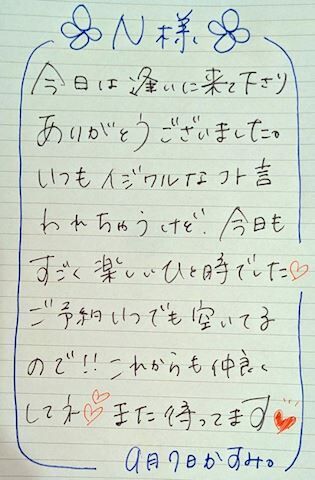 N様
今日は逢いに来て下さり
ありがとうございました。
いつもイジワルなコト言
われちゃうけど、今日も
すごく楽しいひと時でした♡
ご予約いつでも空いてる
ので!!これからも仲良く
してネ♡また待ってます♥
9月7日かすみ。